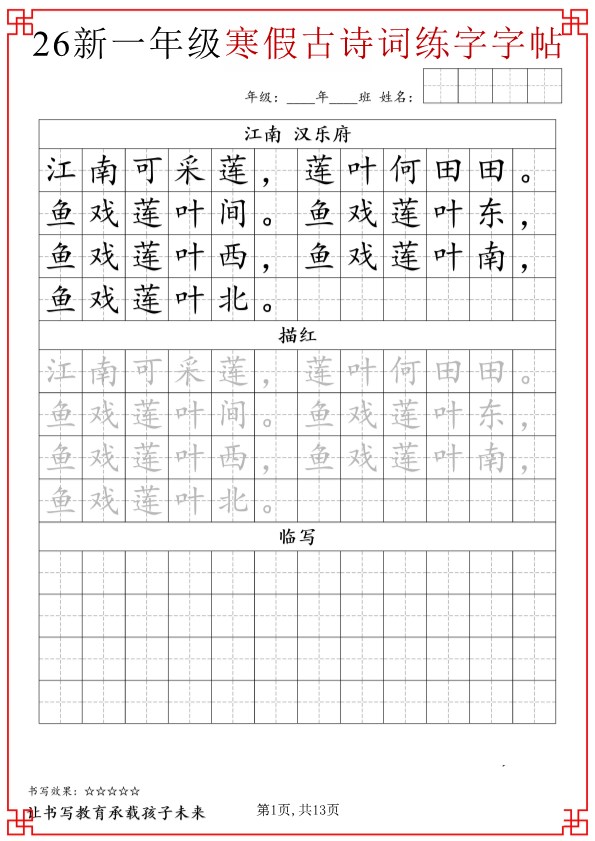 26新一年级寒假古诗词练字字帖
年级：____年____班 姓名：
江南 汉乐府
江南可采莲，莲叶何田田。
鱼戏莲叶间。鱼戏莲叶东，
鱼戏莲叶西，鱼戏莲叶南，
鱼戏莲叶北。
描红
江南可采莲，莲叶何田田。
鱼戏莲叶间。鱼戏莲叶东，
鱼戏莲叶西，鱼戏莲叶南，
鱼戏莲叶北。
临写
书写效果：☆☆☆☆☆
让书写教育承载孩子未来
第1页,共13页